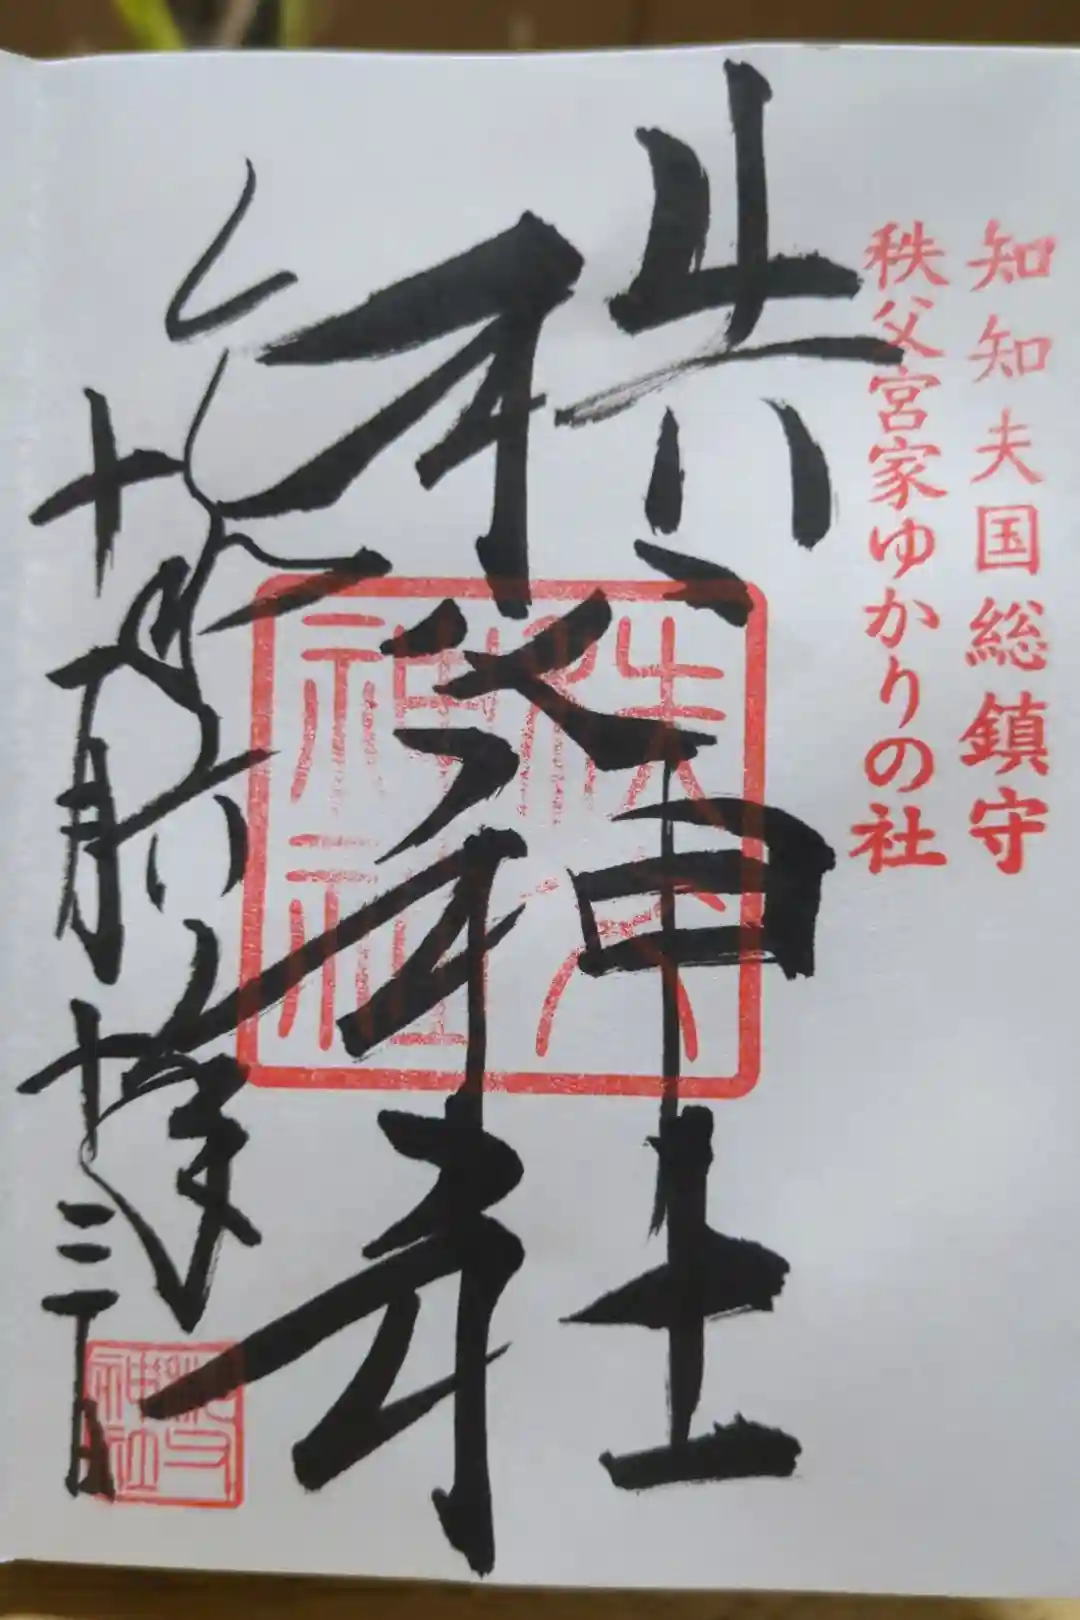 知知夫国総鎮守
秩父宮家ゆかりの社
秩父神社
十月十三日
秩父神社
秩父神社